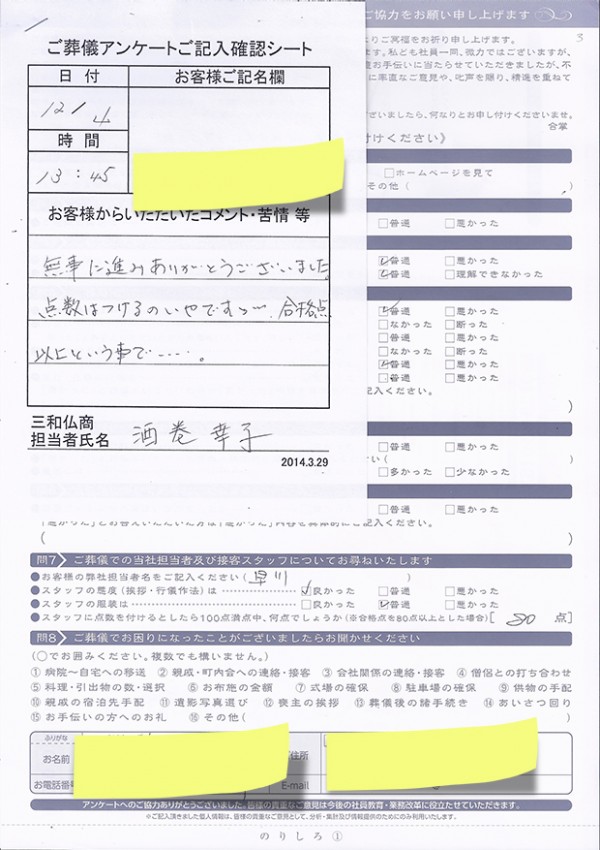 ご協力をお願い申し上げます
3
よりご冥福をお祈り申し上げます。
ます。私ども社員一同、微力ではございますが、
お手伝いに当たらせていただきましたが、不
に率直なご意見や、叱声を賜り、精進を重ねて
ございましたら、何なりとお申し付けくださいませ。
合掌
付けください》
□ホームページを見て
その他（
□普通 □悪かった
□普通 □悪かった
□普通 □理解できなかった
□普通 □悪かった
□なかった □断った
□普通 □悪かった
□普通 □悪かった
□普通 □悪かった
記入ください。
）
□普通 □悪かった
さい（
□多かった □少なかった
□普通 □悪かった
ご葬儀アンケートご記入確認シート
日付 お客様ご記名欄
12/4
時間
13:45
お客様からいただいたコメント・苦情 等
無事に進みありがとうございました。
点数はつけるのいやですょ〜、合格点
以上という事で……。
三和仏商
担当者氏名 酒巻幸子
2014.3.29
「悪かった」とお答えいただいた方は「悪かった」内容を具体的にご記入ください。
（ ）
問7 ご葬儀での当社担当者及び接客スタッフについてお尋ねいたします
●お客様の弊社担当者名をご記入ください（ 早川 ）
●スタッフの態度（挨拶・行儀作法）は □良かった □普通 □悪かった
●スタッフの服装は □良かった □普通 □悪かった
●スタッフに点数を付けるとしたら100点満点中、何点でしょうか（※合格点を80点以上とした場合）[ 80 点]
問8 ご葬儀でお困りになったことがございましたらお聞かせください
（○でお囲みください。複数でも構いません。）
①病院〜自宅への移送 ②親戚・町内会への連絡・接客 ③会社関係の連絡・接客 ④僧侶との打ち合わせ
⑤料理・引出物の数・選択 ⑥お布施の金額 ⑦式場の確保 ⑧駐車場の確保 ⑨供物の手配
⑩親戚の宿泊先手配 ⑪遺影写真選び ⑫喪主の挨拶 ⑬葬儀後の諸手続き ⑭あいさつ回り
⑮お手伝いの方へのお礼 ⑯その他（ ）
ふりがな
お名前 ご住所
お電話番号 E-mail
アンケートへのご協力ありがとうございました。皆様の貴重なご意見は今後の社員教育・業務改革に役立たせていただきます。
※ご記入頂きました個人情報は、皆様の貴重なご意見として、分析・集計及び情報提供のためにのみ利用いたします。
のりしろ①